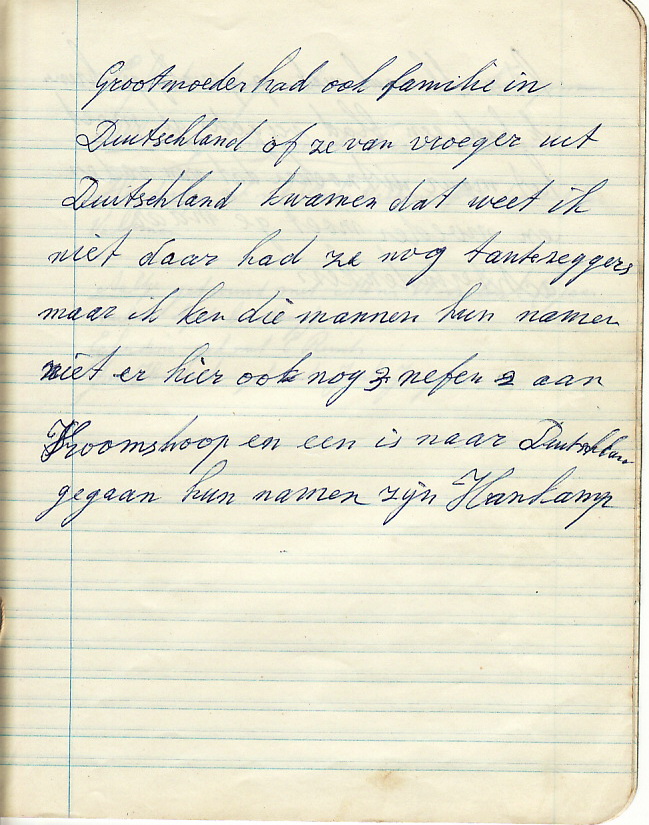 Grootmoeder had ook familie in
Duutschland of ze van vroeger uit
Duitschland kwamen dat weet ik
niet daar had ze nog tantezeggers
maar ik ken die mannen hun namen
niet er hier ook nog 3 nefen 2 aan
Vroomshoop en een is naar Duutschland
gegaan hun namen zijn Hankamp